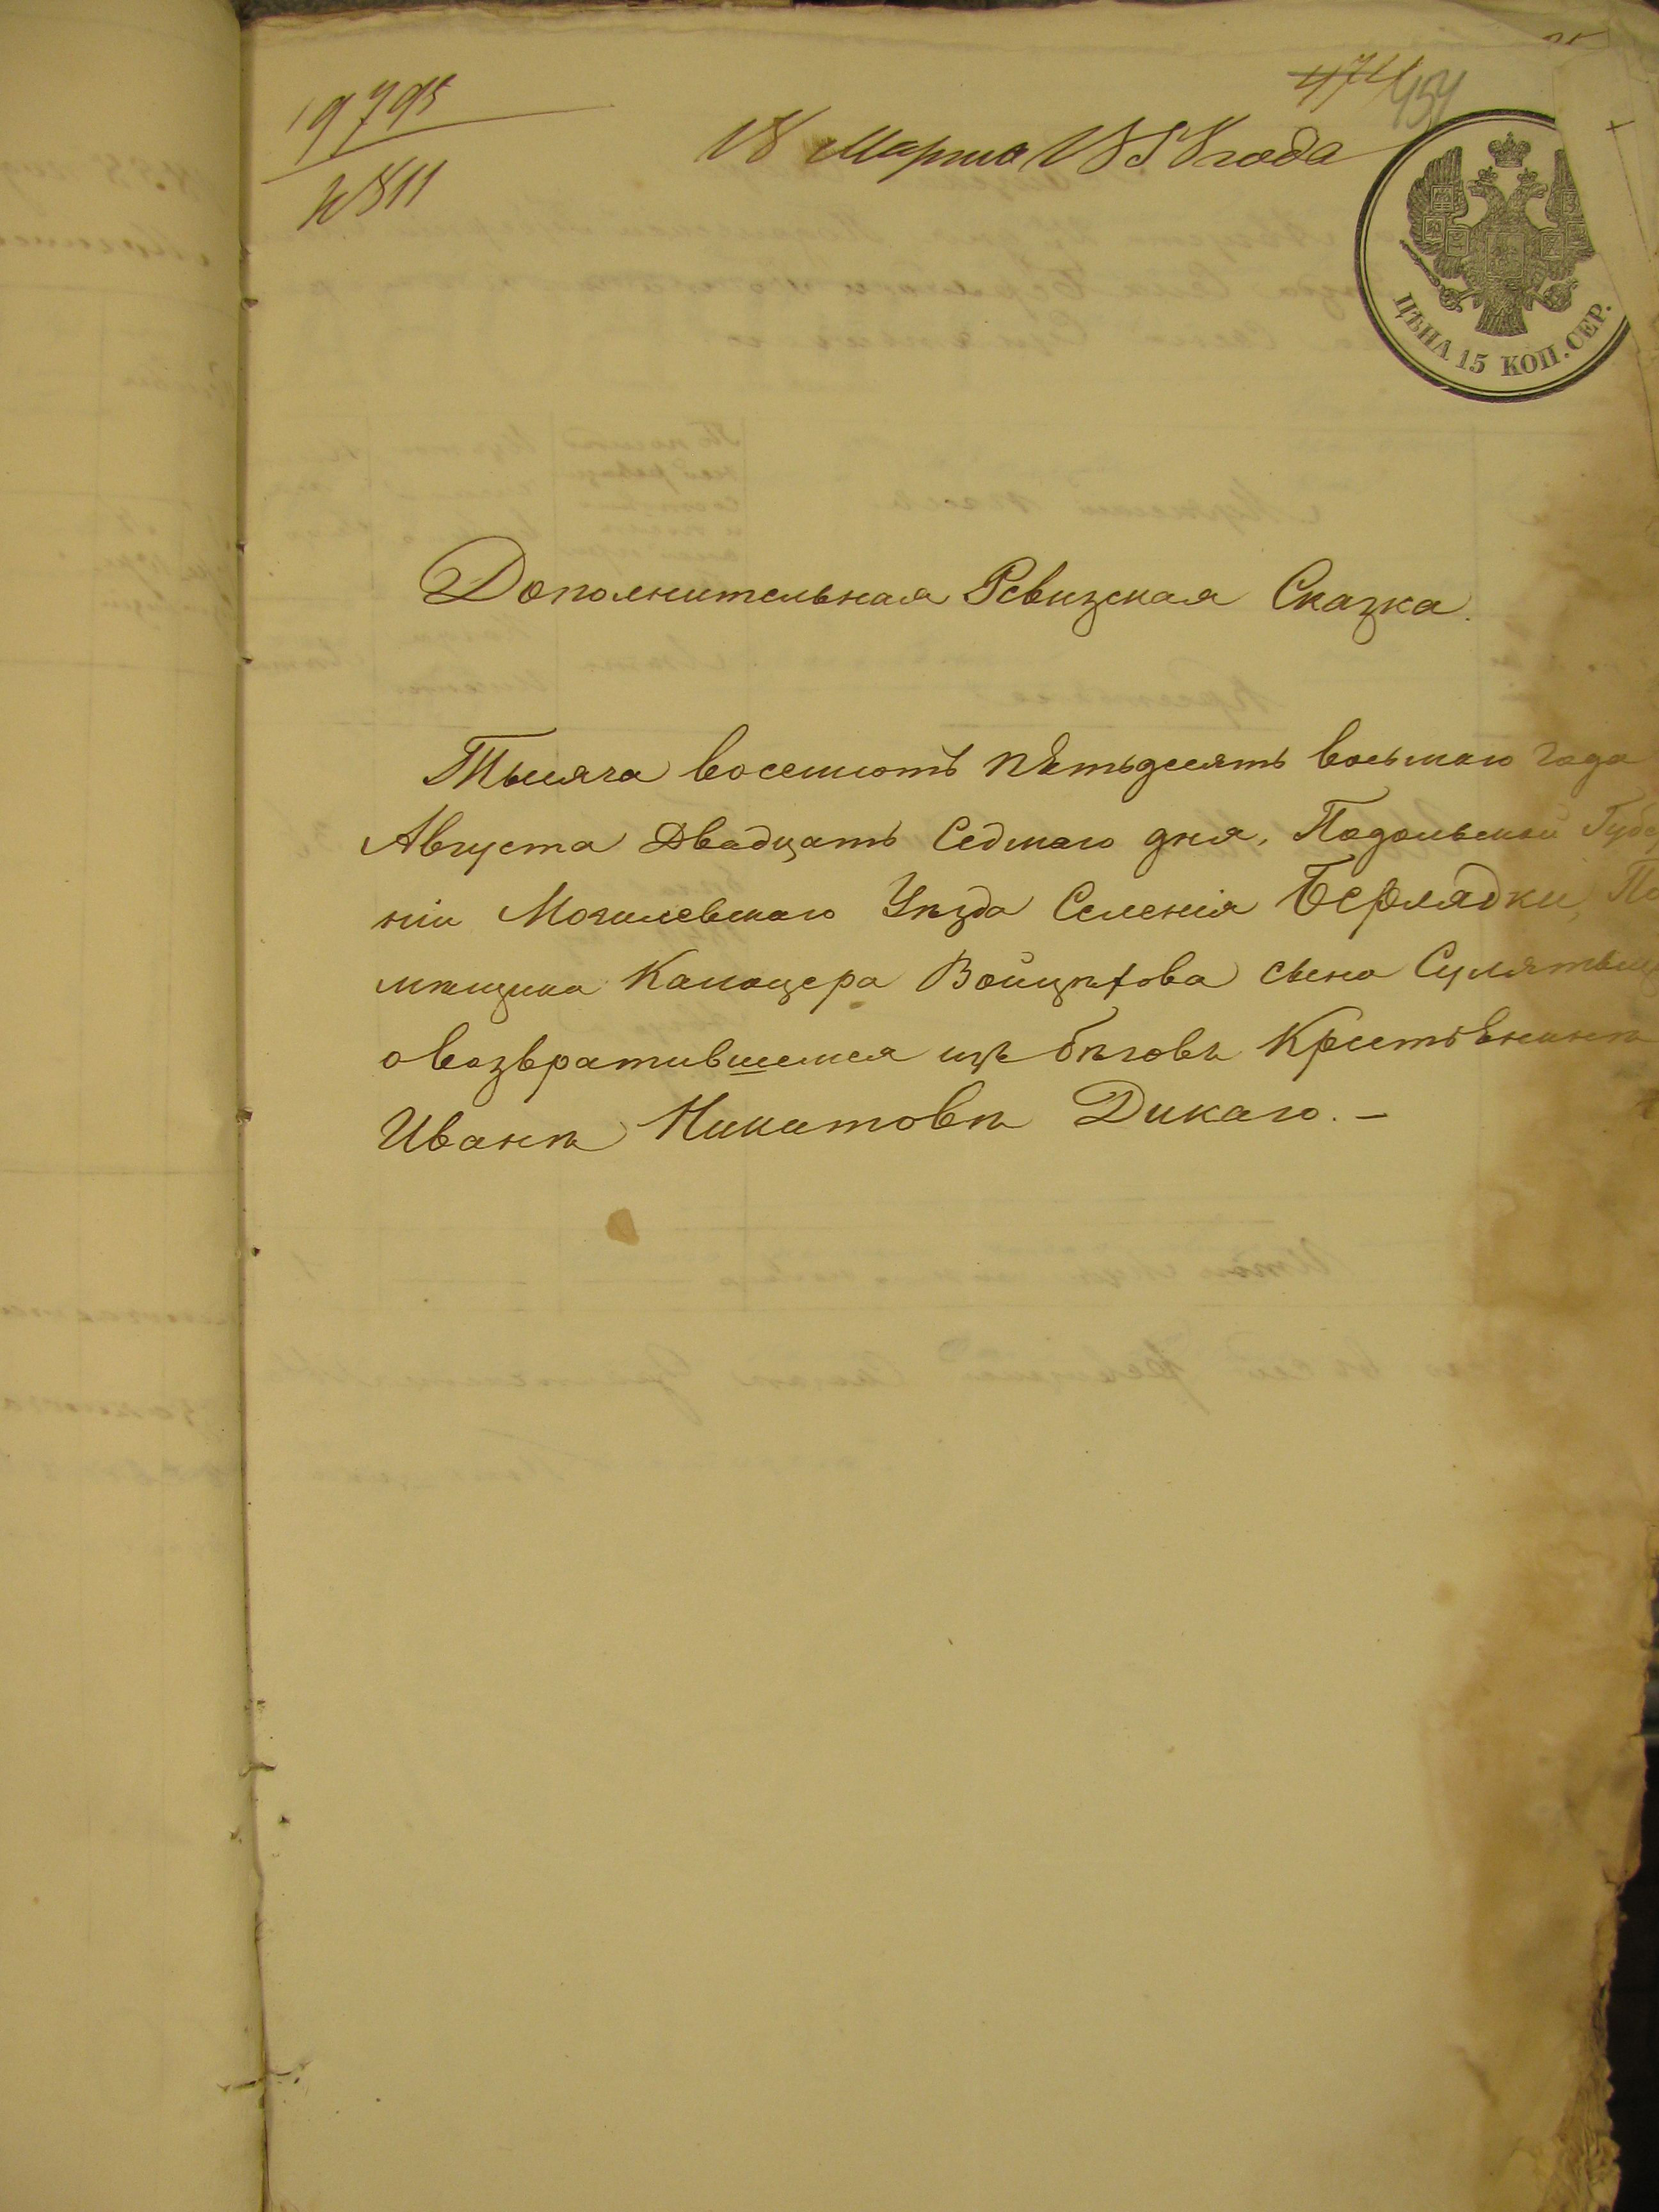 19795
474 454
18 Марта 1858 года
2811
ЦѢНА 15 КОП. СЕР.
Дополнительная Ревизская Сказка.
Тысяча восемьсотъ пѣтьдесять восьмаго Года
Августа Двадцать Седмаго дня, Подольской Губер
ніи Могилевскаго Уѣзда Селенія Берлядки, По
мѣщика Каποцера Войцѣхова сына Сулятыц
о возвратившемся изъ бѣговъ Крестьѣнинѣ
Иванѣ Никитовѣ Дикаго. —